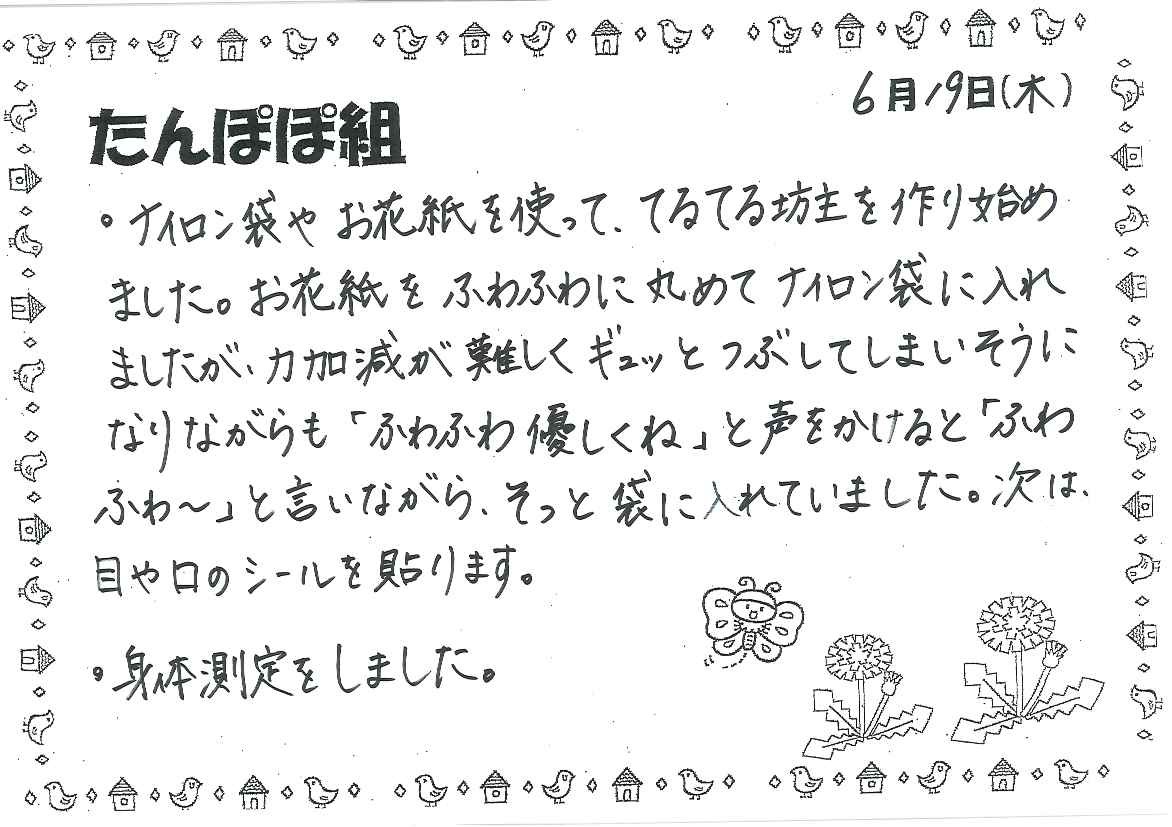 6月19日(木)
たんぽぽ組
・ナイロン袋やお花紙を使って、てるてる坊主を作り始め
ました。お花紙をふわふわに丸めてナイロン袋に入れ
ましたが、力加減が難しくギュッとつぶしてしまいそうに
なりながらも「ふわふわ優しくね」と声をかけると「ふわ
ふわ～」と言いながら、そっと袋に入れていました。次は、
目や口のシールを貼ります。
・身体測定をしました。